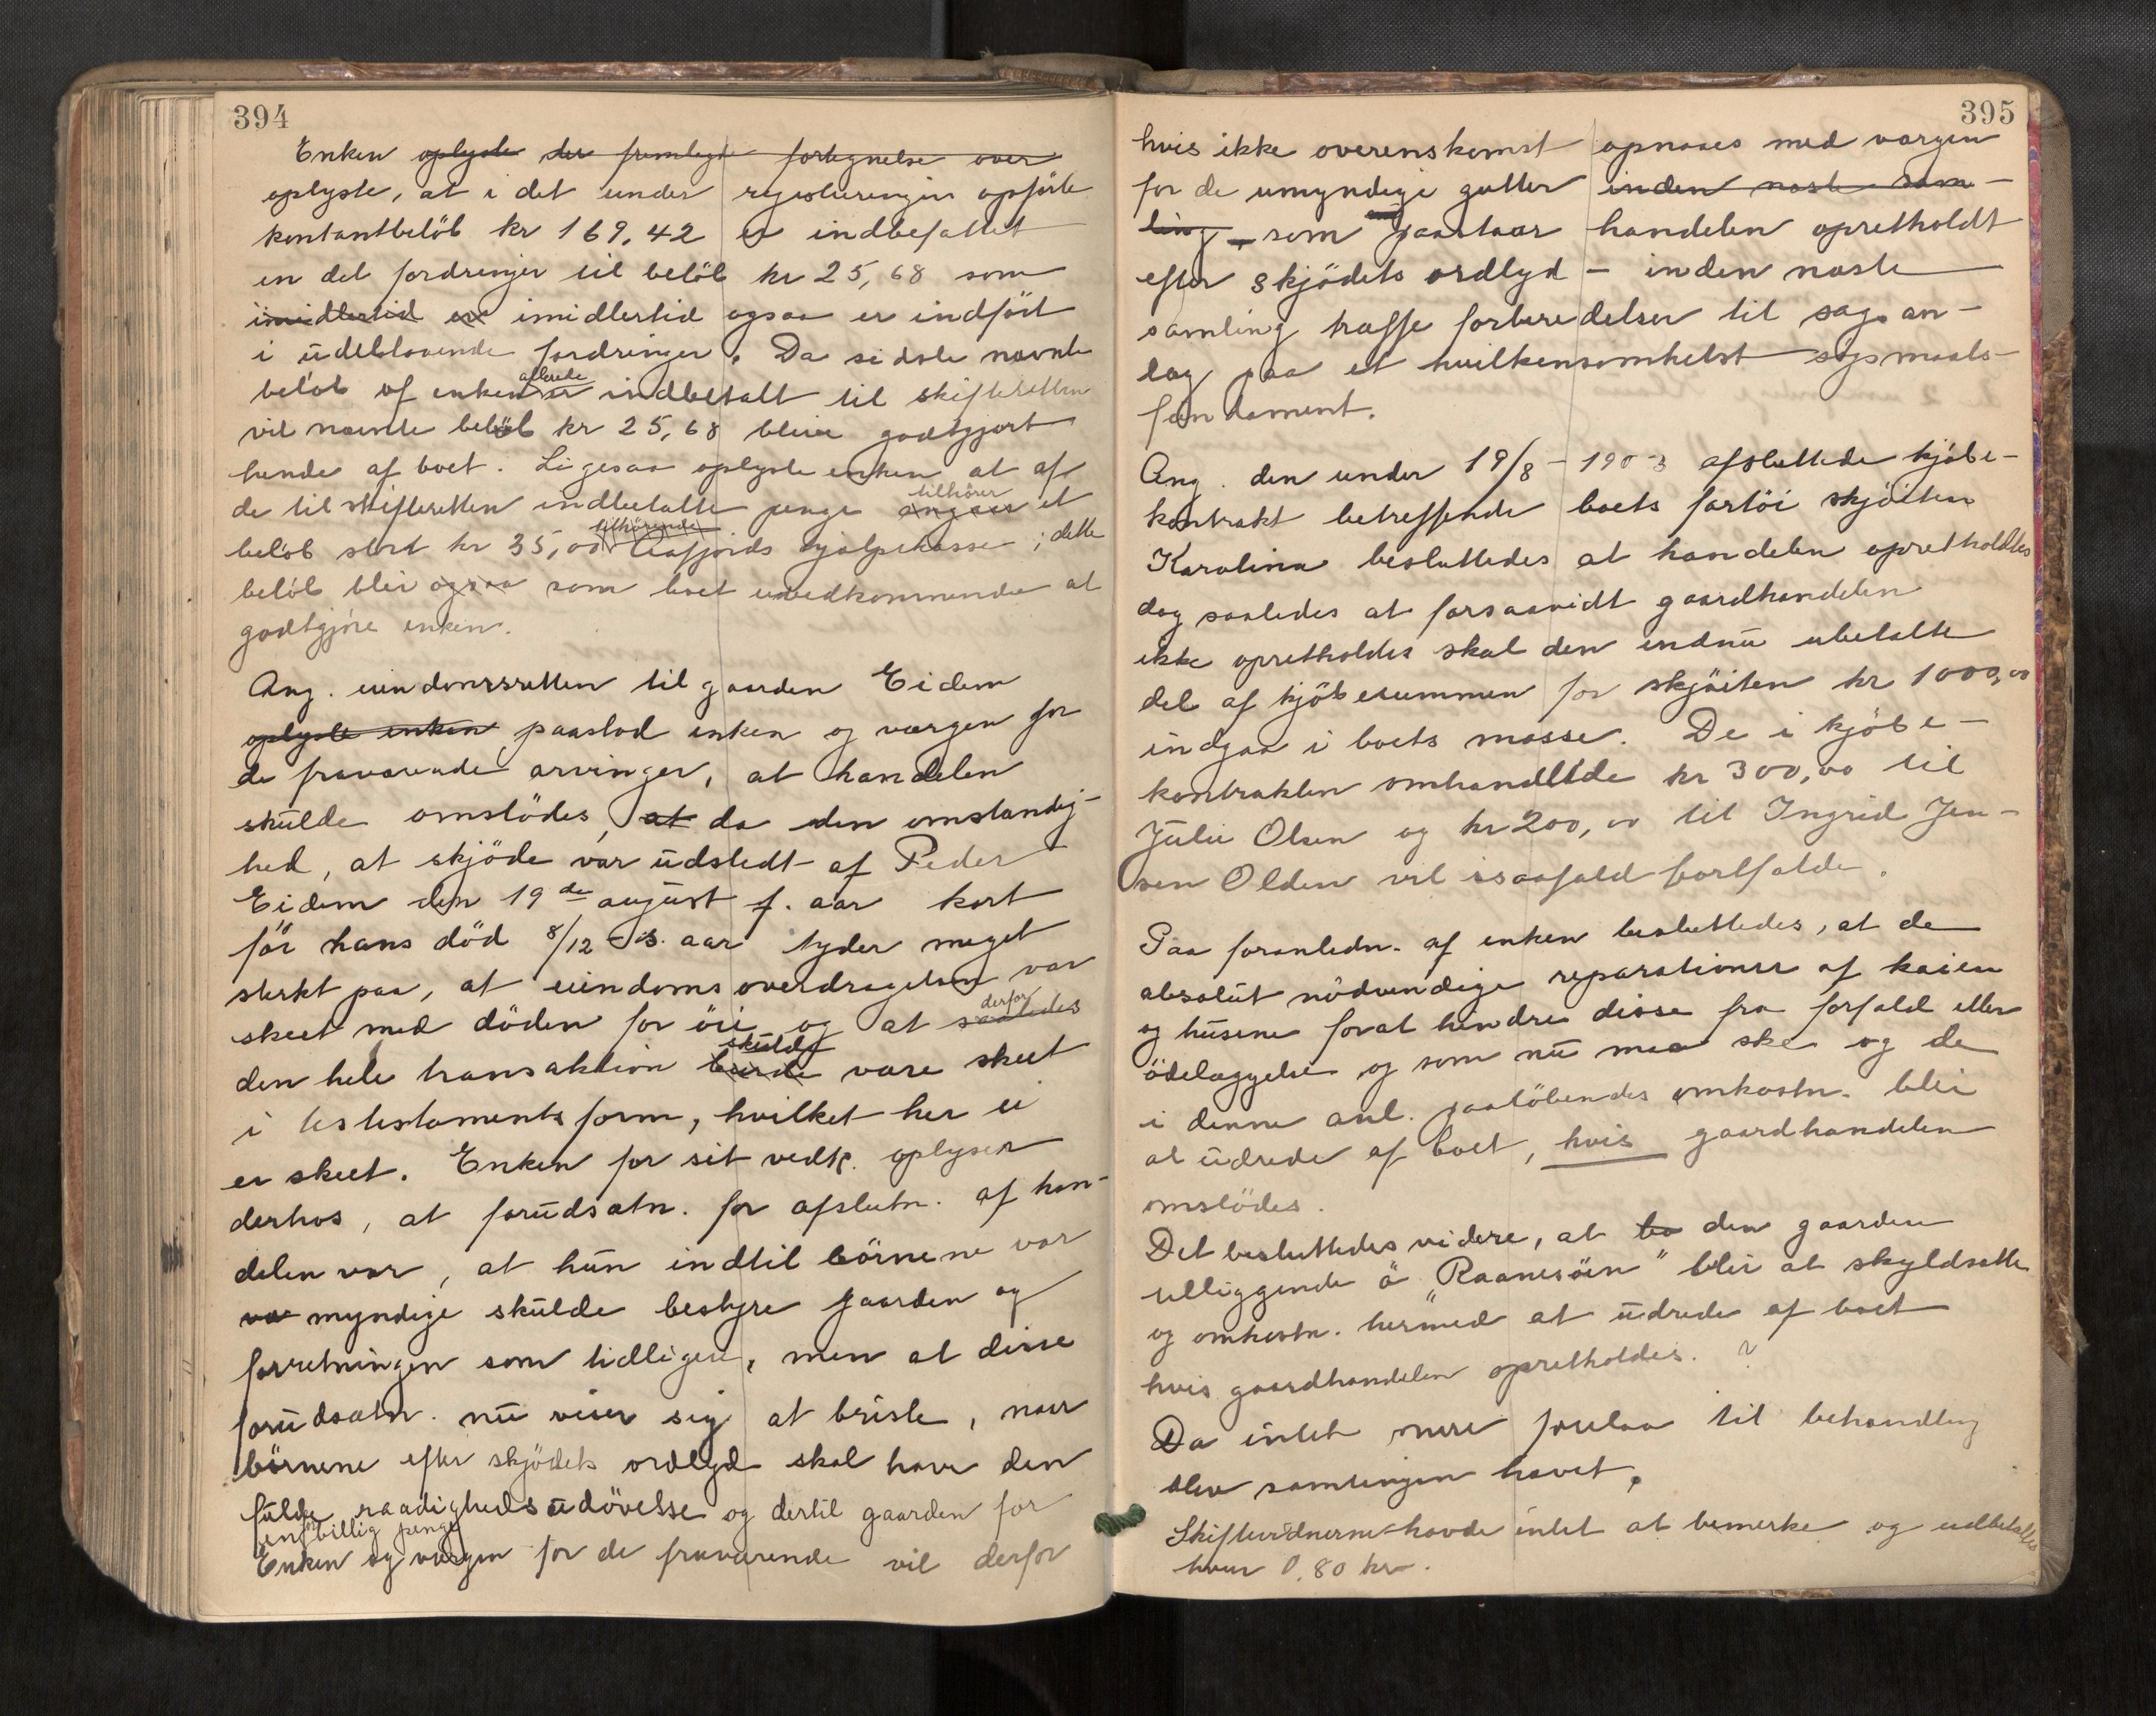 394
Enken oplyste der fremlegt fortegnelse over
oplyste, at i det under registreringen opførte
kontantbeløb kr 169,42 er indbefattet
en del fordringer til beløb kr 25,68 som
imidlertid er imidlertid ogsaa er indført
i udestaaende fordringer. Da sidste nævnte
beløb af enken allerede er indbetalt til skifteretten
vil nævnte beløb kr 25,68 blive godtgjort
hende af boet. Ligesaa oplyste enken at af
de til skifteretten indbetalte penge angaaes tilhører et
beløb stort kr 35,00 tilhørende Aafjords hjælpekasse; dette
beløb blir ogsaa som boet uvedkommende at
godtgjøre enken.
Ang. eiendomsretten til gaarden Eidem
oplyste enken paastod enken og værgen for
de fraværende arvinger, at handelen
skulde omstødes, at da den omstændig-
hed, at skjøde var udstedt af Peder
Eidem den 19de august f. aar kort
før hans død 8/12 s. aar tyder meget
sterkt paa, at eiendomsoverdragelsen var
skeet med døden for øie og at saaledes derfor
den hele transaktion burde skulde være skeet
i testamentsform, hvilket her ei
er skeet. Enken for sit vedk. oplyser
derhos, at forudsætn. for afslutn. af han-
delen var, at hun indtil børnene var
var myndige skulde bestyre gaarden og
forretningen som tidligere, men at disse
forudsætn. nu viser sig at briste, naar
børnene efter skjødets ordlyd skal have den
fulde raadighedsudøvelse og dertil gaarden for
en for billig penge
Enken og værgen for de fraværende vil derfor
395
hvis ikke overenskomst opnaaes med værgen
for de umyndige gutter inden næste sam-
ling - som paastaar handelen opretholdt
efter skjødets ordlyd - inden næste
samling træffe forberedelser til sagsan-
læg paa et hvilkensomhelst søgsmaals-
fundament.
Ang. den under 19/8 - 1903 afsluttede kjøbe-
kontrakt betreffende boets fartøi skjøiten
Karolina besluttedes at handelen opretholdtes
dog saaledes at forsaavidt gaardhandelen
ikke opretholdes skal den endnu ubetalte
del af kjøbesummen for skjøiten kr 1000,00
indgaa i boets masse. De i kjøbe-
kontrakten omhandlede kr 300,00 til
Julie Olsen og kr 200,00 til Ingrid Jen-
sen Olden vil isaafald bortfalde.
Paa foranledn. af enken besluttedes, at de
absolut nødvendige reparationer af kaien
og husene forat hindre disse fra forfald eller
ødelæggelse og som nu maa ske og de
i denne anl. paaløbendes omkostn. blir
at udrede af boet, hvis gaardhandelen
omstødes.
Det besluttedes videre, at bo den gaarden
tilliggende ø "Raanesøen" blir at skyldsætte
og omkostn. hermed at udrede af boet
hvis gaardhandelen opretholdes. ?
Da intet mere forelaa til behandling
blev samlingen hævet.
Skiftevidnerne havde intet at bemerke og udbetaltes
hver 0,80 kr.